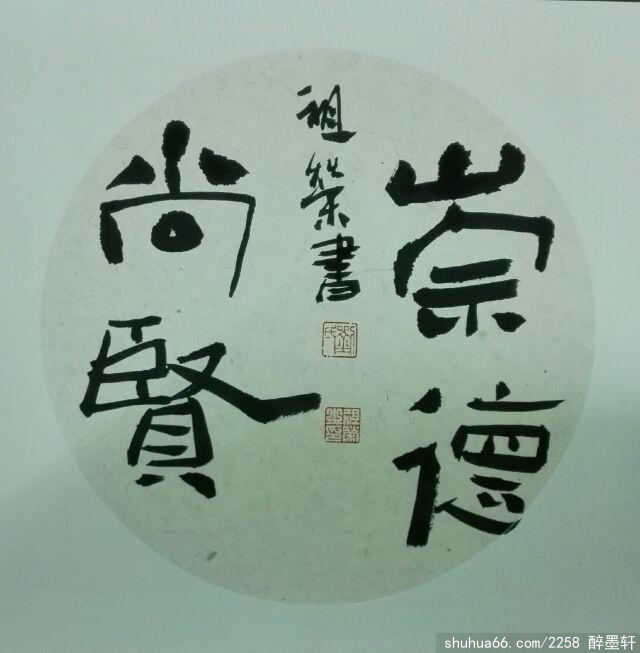 崇德
尚賢
祖榮書
shuhua66.com/2258 醉墨轩